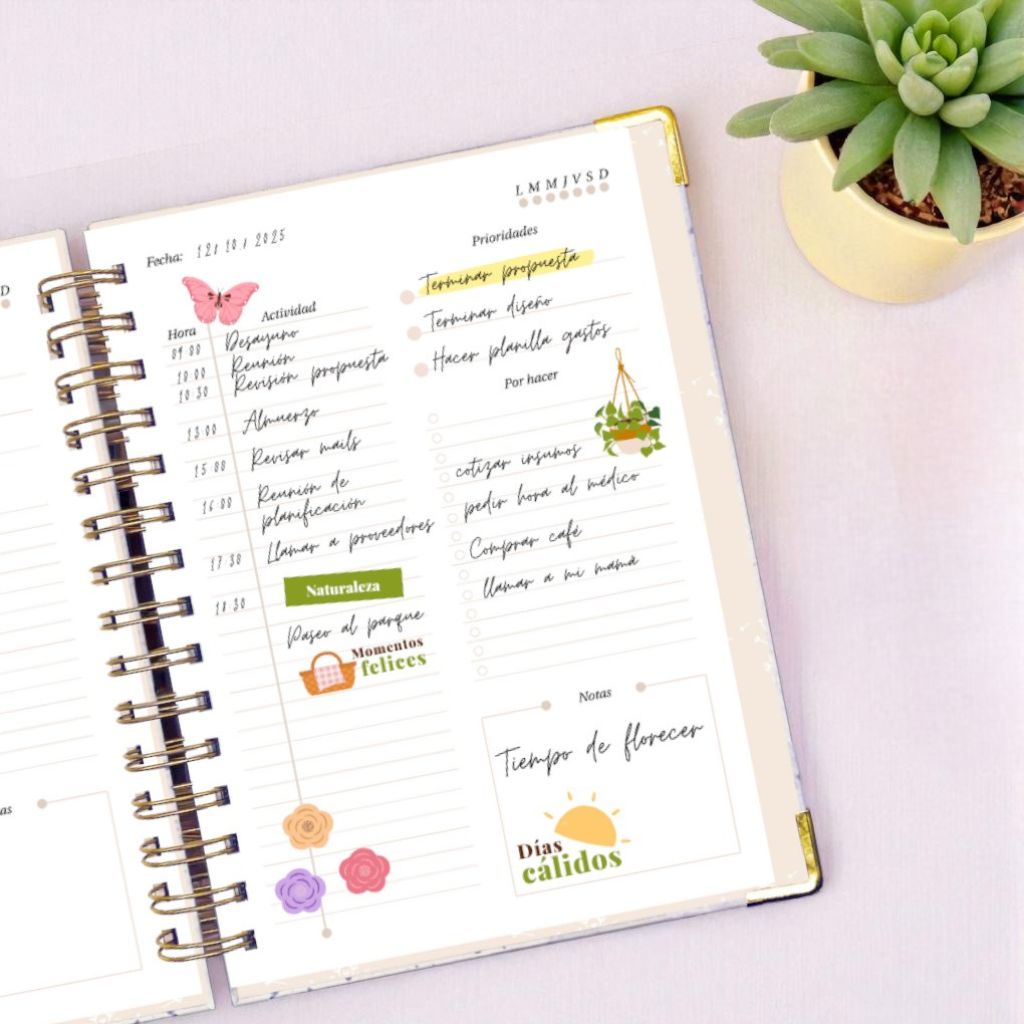 L M M J V S D
Fecha: 12/10/2025
Hora Actividad
09:00 Desayuno
10:00 Reunión
10:30 Revisión propuesta
13:00 Almuerzo
15:00 Revisar mails
16:00 Reunión de
planificación
17:30 Llamar a proveedores
18:30 Naturaleza
Paseo al parque
Momentos
felices
Prioridades
Terminar propuesta
Terminar diseño
Hacer planilla gastos
Por hacer
cotizar insumos
pedir hora al médico
Comprar café
llamar a mi mamá
Notas
Tiempo de florecer
Días
cálidos
D
as